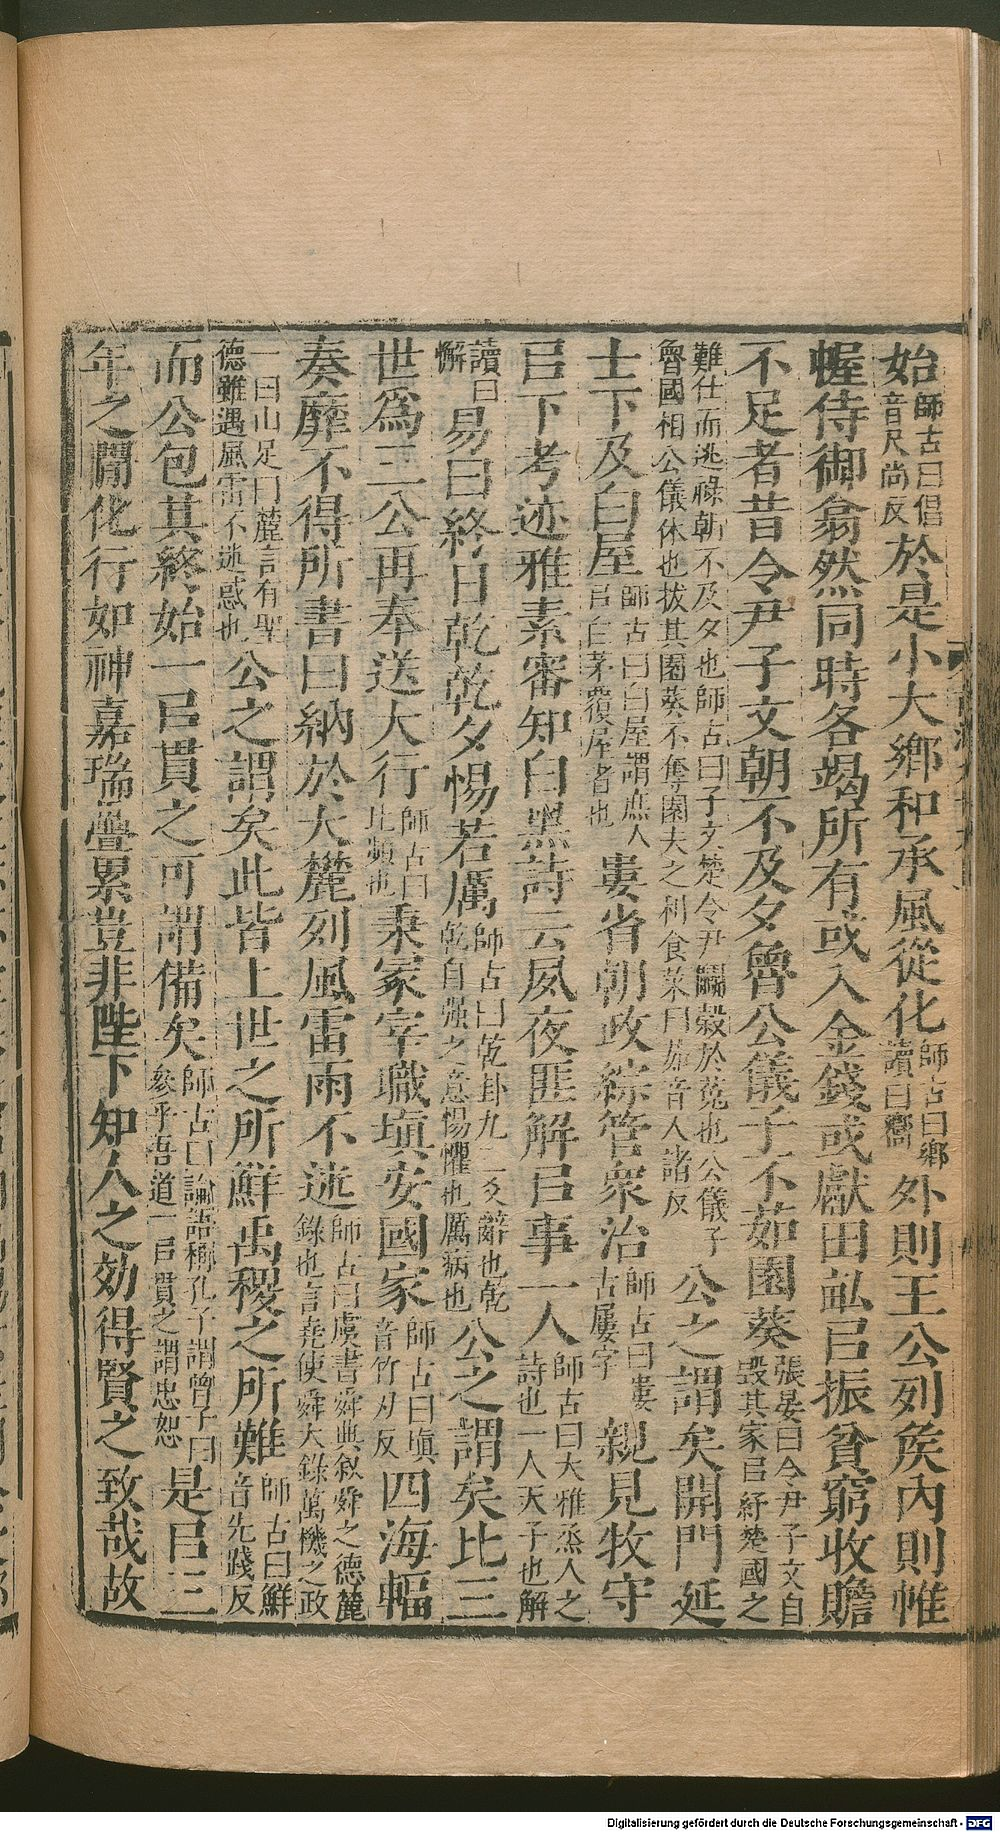 始師古曰倡音尺尚反於是小大鄉和承風從化師古曰鄉讀曰嚮外則王公列矦內則帷
幄侍御翕然同時各竭所有或入金錢或獻田畞㠯振貧窮收贍
不足者昔令尹子文朝不及夕魯公儀子不茹園葵張晏曰令尹子文自毀其家㠯紓楚國之
難仕而逃祿朝不及夕也師古曰子文楚令尹鬭穀於菟也公儀子魯國相公儀休也拔其園葵不奪園夫之利食菜曰茹音人諸反公之謂矣開門延
士下及白屋師古曰白屋謂庶人㠯白茅覆屋者也婁省朝政綜管衆治師古曰婁古屢字親見牧守
㠯下考迹雅素審知白黑詩云夙夜匪解㠯事一人師古曰大雅烝人之詩也一人天子也解
讀曰懈易曰終日乾乾夕惕若厲師古曰乾卦九三爻辭也乾乾自強之意惕懼也厲病也公之謂矣比三
世爲三公再奉送大行師古曰比頻也秉冢宰職塡安國家師古曰塡音竹刃反四海輻
奏靡不得所書曰納於大麓列風雷雨不迷師古曰虞書舜典敘舜之德麓錄也言堯使舜大錄萬機之政
一曰山足曰麓言有聖德雖遇風雷不迷惑也公之謂矣此皆上世之所鮮禹稷之所難師古曰鮮音先踐反
而公包其終始一㠯貫之可謂備矣師古曰論語稱孔子謂曾子曰參乎吾道一㠯貫之謂忠恕是㠯三
年之閒化行如神嘉瑞疊累豈非陛下知人之効得賢之致哉故
Digitalisierung gefördert durch die Deutsche Forschungsgemeinschaft - DFG